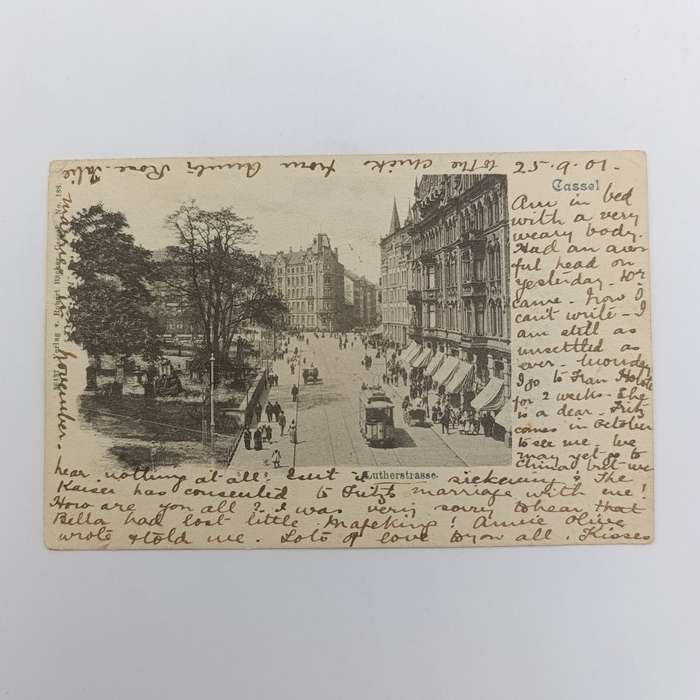 Cassel
Lutherstrasse.
Am in bed
with a very
weary body.
Had an aw-
ful head on
yesterday - Dr
came - how I
can't write - I
am still as
unsettled as
ever - Monday
I go to Frau
for 2 weeks - She
is a dear - Fritz
comes in October
to see me - We
may yet go to
China, but we
hear nothing at all? Isn't it sickening? The
Kaiser has consented to Fritz's marriage with me!
How are you all? I was very sorry to hear that
Bella had lost little Mafeking! Annie Olive
wrote & told me. Lots of love to you all. Kisses
to The chicks from Auntie Rose
married in November.
Verlag v.
No. 188